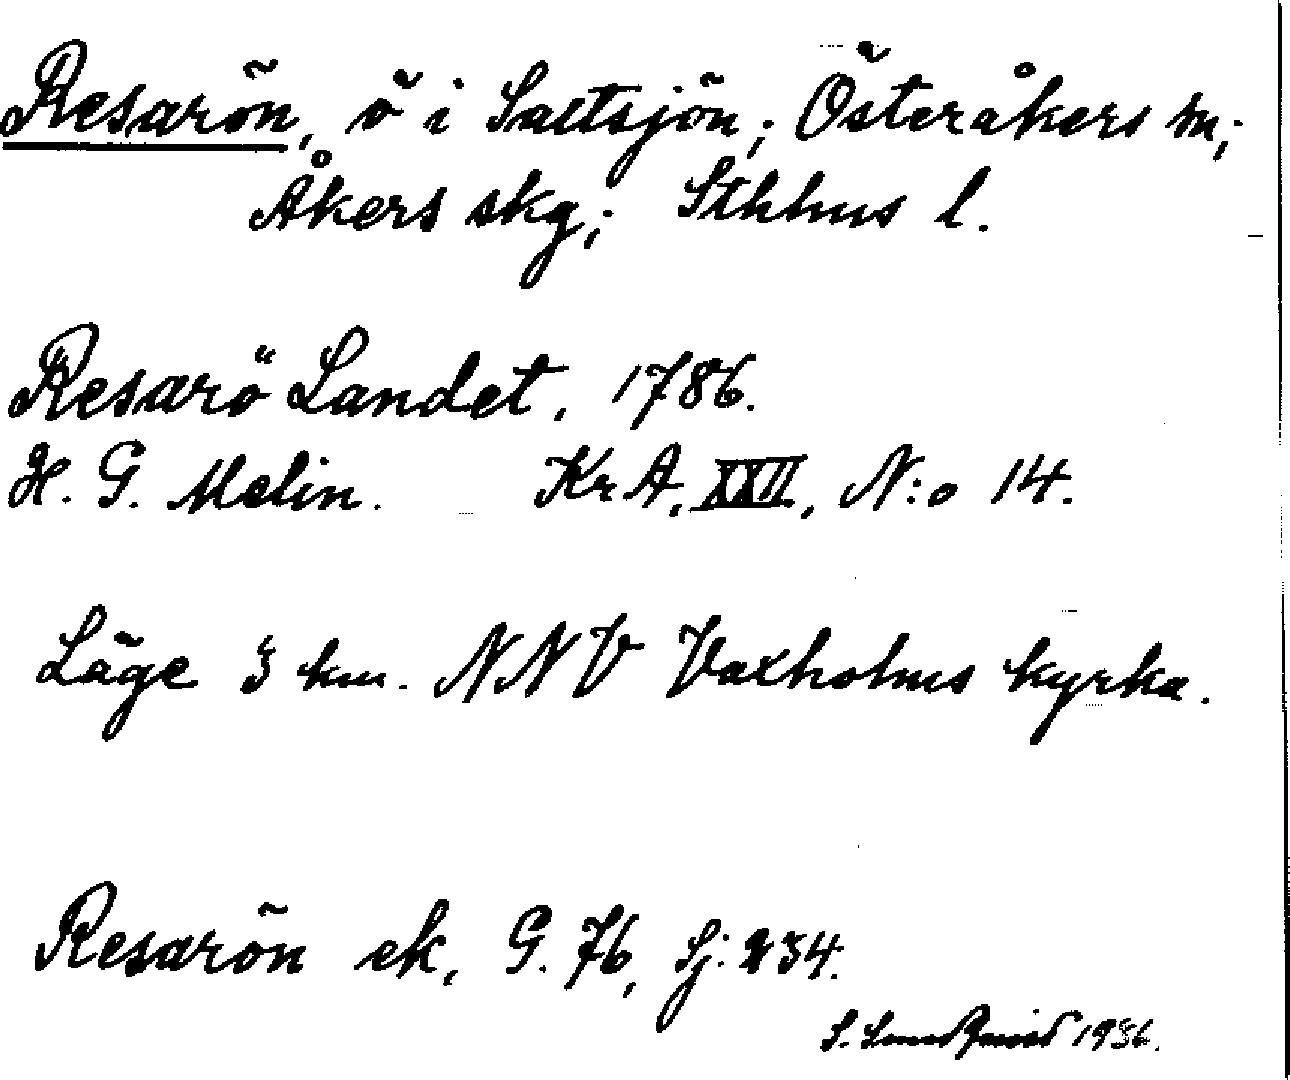 Resarön, ö i Saltsjön; Österåkers sn;
Åkers skg; Sthlms l.
Resarö Landet, 1786.
H. G. Melin. Kr A, XXII, N:o 14.
Läge 3 km. NNV Vaxholms kyrka.
Resarön ek, G. 76, Sj: 234.
S. 1936.